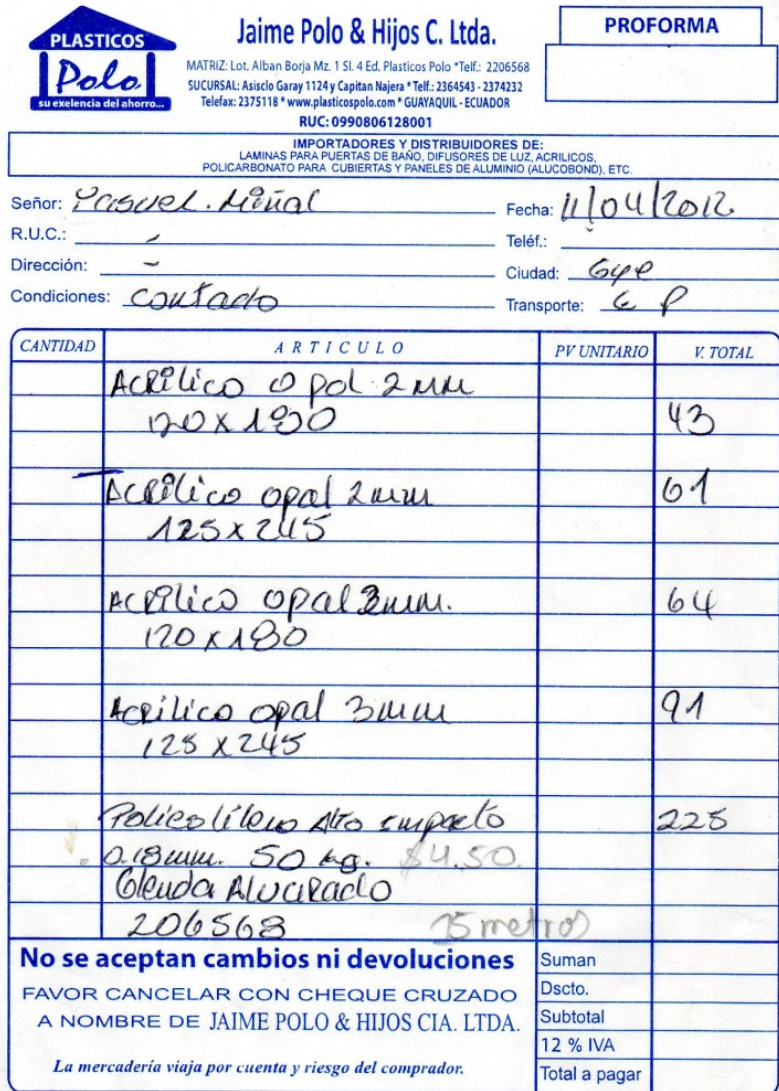 PLASTICOS
Polo
su exelencia del ahorro...
Jaime Polo & Hijos C. Ltda.
MATRIZ: Lot. Alban Borja Mz. 1 Sl. 4 Ed. Plasticos Polo *Telf.: 2206568
SUCURSAL: Asisclo Garay 1124 y Capitan Najera * Telf.: 2364543 - 2374232
Telefax: 2375118 * www.plasticospolo.com * GUAYAQUIL - ECUADOR
RUC: 0990806128001
PROFORMA
IMPORTADORES Y DISTRIBUIDORES DE:
LAMINAS PARA PUERTAS DE BAÑO, DIFUSORES DE LUZ, ACRILICOS,
POLICARBONATO PARA CUBIERTAS Y PANELES DE ALUMINIO (ALUCOBOND), ETC.
Señor:
Fecha: 11/04/2012
R.U.C.: -
Teléf.:
Dirección: -
Ciudad: Gye
Condiciones: Contado
Transporte:
CANTIDAD ARTICULO PV UNITARIO V. TOTAL
Acrilico opal 2 mm
120 x 180 43
Acrilico opal 2 mm 61
125 x 245
Acrilico opal 3 mm. 64
120 x 180
Acrilico opal 3 mm 91
125 x 245
Alto impacto 225
0.18 mm. 50 kg. $4.50
Glenda Alvarado
206568 75 metros
No se aceptan cambios ni devoluciones
FAVOR CANCELAR CON CHEQUE CRUZADO
A NOMBRE DE JAIME POLO & HIJOS CIA. LTDA.
La mercadería viaja por cuenta y riesgo del comprador.
Suman
Dscto.
Subtotal
12 % IVA
Total a pagar